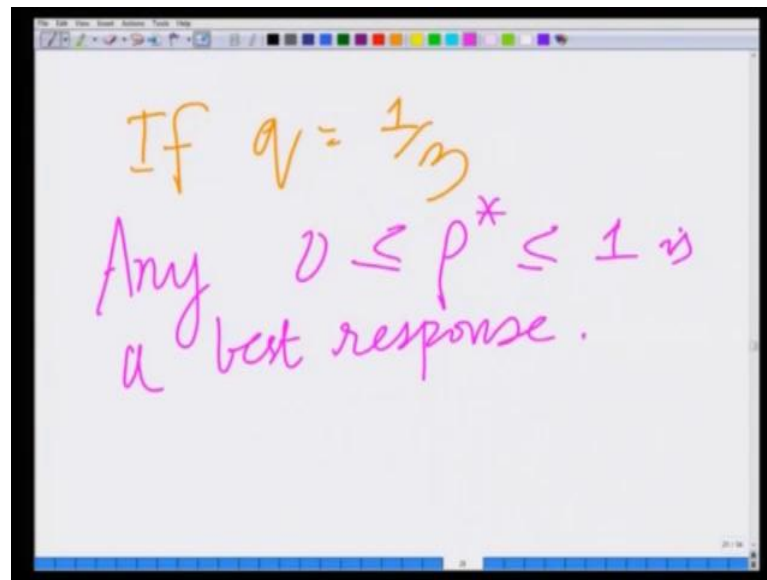 File Edit View Insert Actions Tools Help
If q = 1/3
Any 0 ≤ p* ≤ 1 is
a best response.